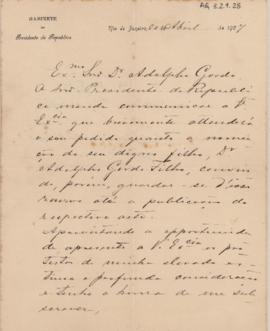 AG 8.2.1.28
GABINETE
DO
Presidente da Republica
Rio de Janeiro, 20 Abril de 1907
Ex.mo Snr. Dr. Adolpho Gordo
O Snr. Presidente da Republi-
ca manda communicar a V.
Ex.cia que brevemente attenderá
o seu pedido quanto a nomea-
ção de seu digno filho, Dr
Adolpho Gordo Filho, convin-
do, porem, guardar-se d'isso
reserva até a publicação do
respectivo acto.
Aproveitando a opportunida-
de apresento a V. Ex.cia os pro-
testos de minha elevada es-
tima e profunda consideração
e tenho a honra de me sub-
screver,